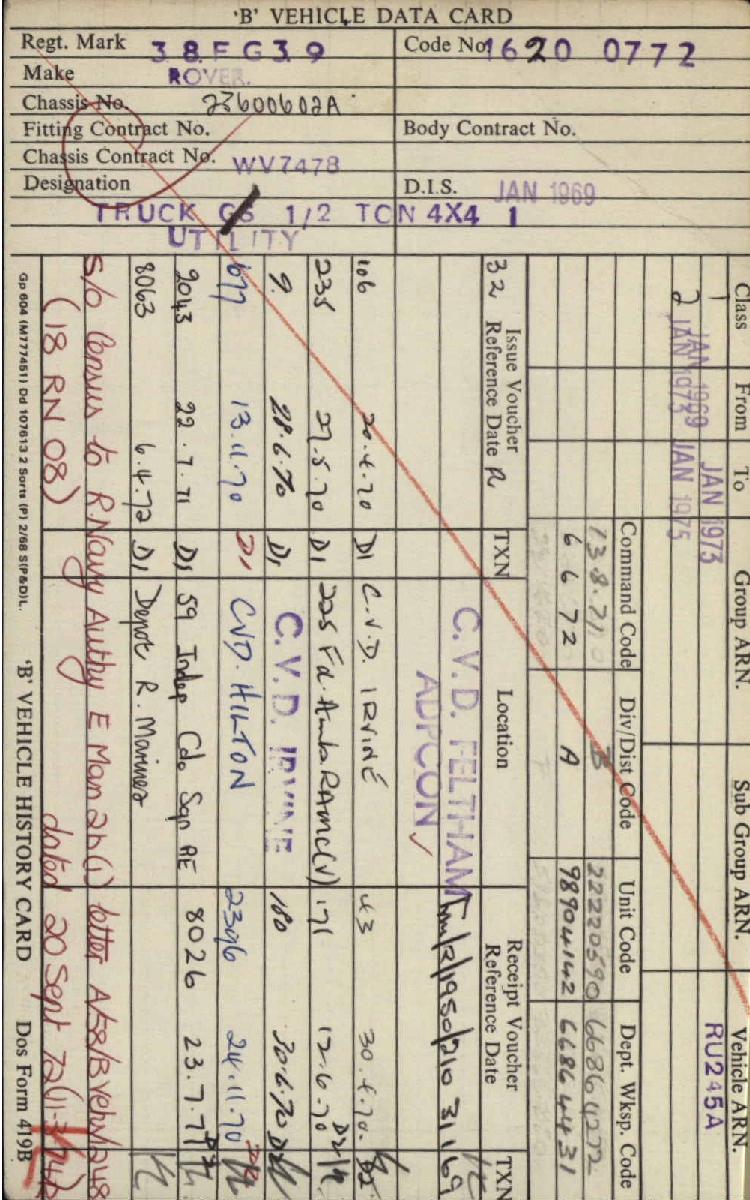 'B' VEHICLE DATA CARD
Regt. Mark 38FG39 Code No. 1620 0772
Make ROVER.
Chassis No. 23600602A
Fitting Contract No. Body Contract No.
Chassis Contract No. WV7478
Designation D.I.S. JAN 1969
TRUCK GS 1/2 TON 4X4 1
UTILITY
Class From To Group ARN. Sub Group ARN. Vehicle ARN.
1 JAN 1969 JAN 1973 RU245A
2 JAN 1973 JAN 1975
Command Code Div/Dist Code Unit Code Dept. Wksp. Code
13.8.71 B 22220590 66864272
6 6 72 A 98904142 66864431
Issue Voucher Reference Date TXN Location Receipt Voucher Reference Date TXN
32 R C.V.D. FELTHAM 31 1 69
ADPCON
106 20.4.70 D1 C.V.D. IRVINE 43 30.4.70. D2
235 27.5.70 D1 225 Fd. Amb RAMC(V) 171 12.6.70 D2
9. 28.6.70 D1 C.V.D. IRVINE 180 30.6.70 D2
1677 13.11.70 D1 CVD. HILTON 2396 24.11.70
2043 22.7.71 D1 59 Indep Cdo Sqn RE 8026 23.7.71 D2
8063 6.4.72 D1 Depot R. Marines
S/O Census to R Navy Authy E Man 2b(1) letter A/58/B Vehs/248
(18 RN 08) dated 20 Sept 72
Gp 604 (M777451) Dd 107613 2 Sorts (P) 2/68 S(P&D)L. 'B' VEHICLE HISTORY CARD Dos Form 419B